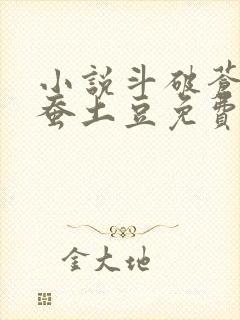 小說斗破蒼
蚕土豆免費
金大地